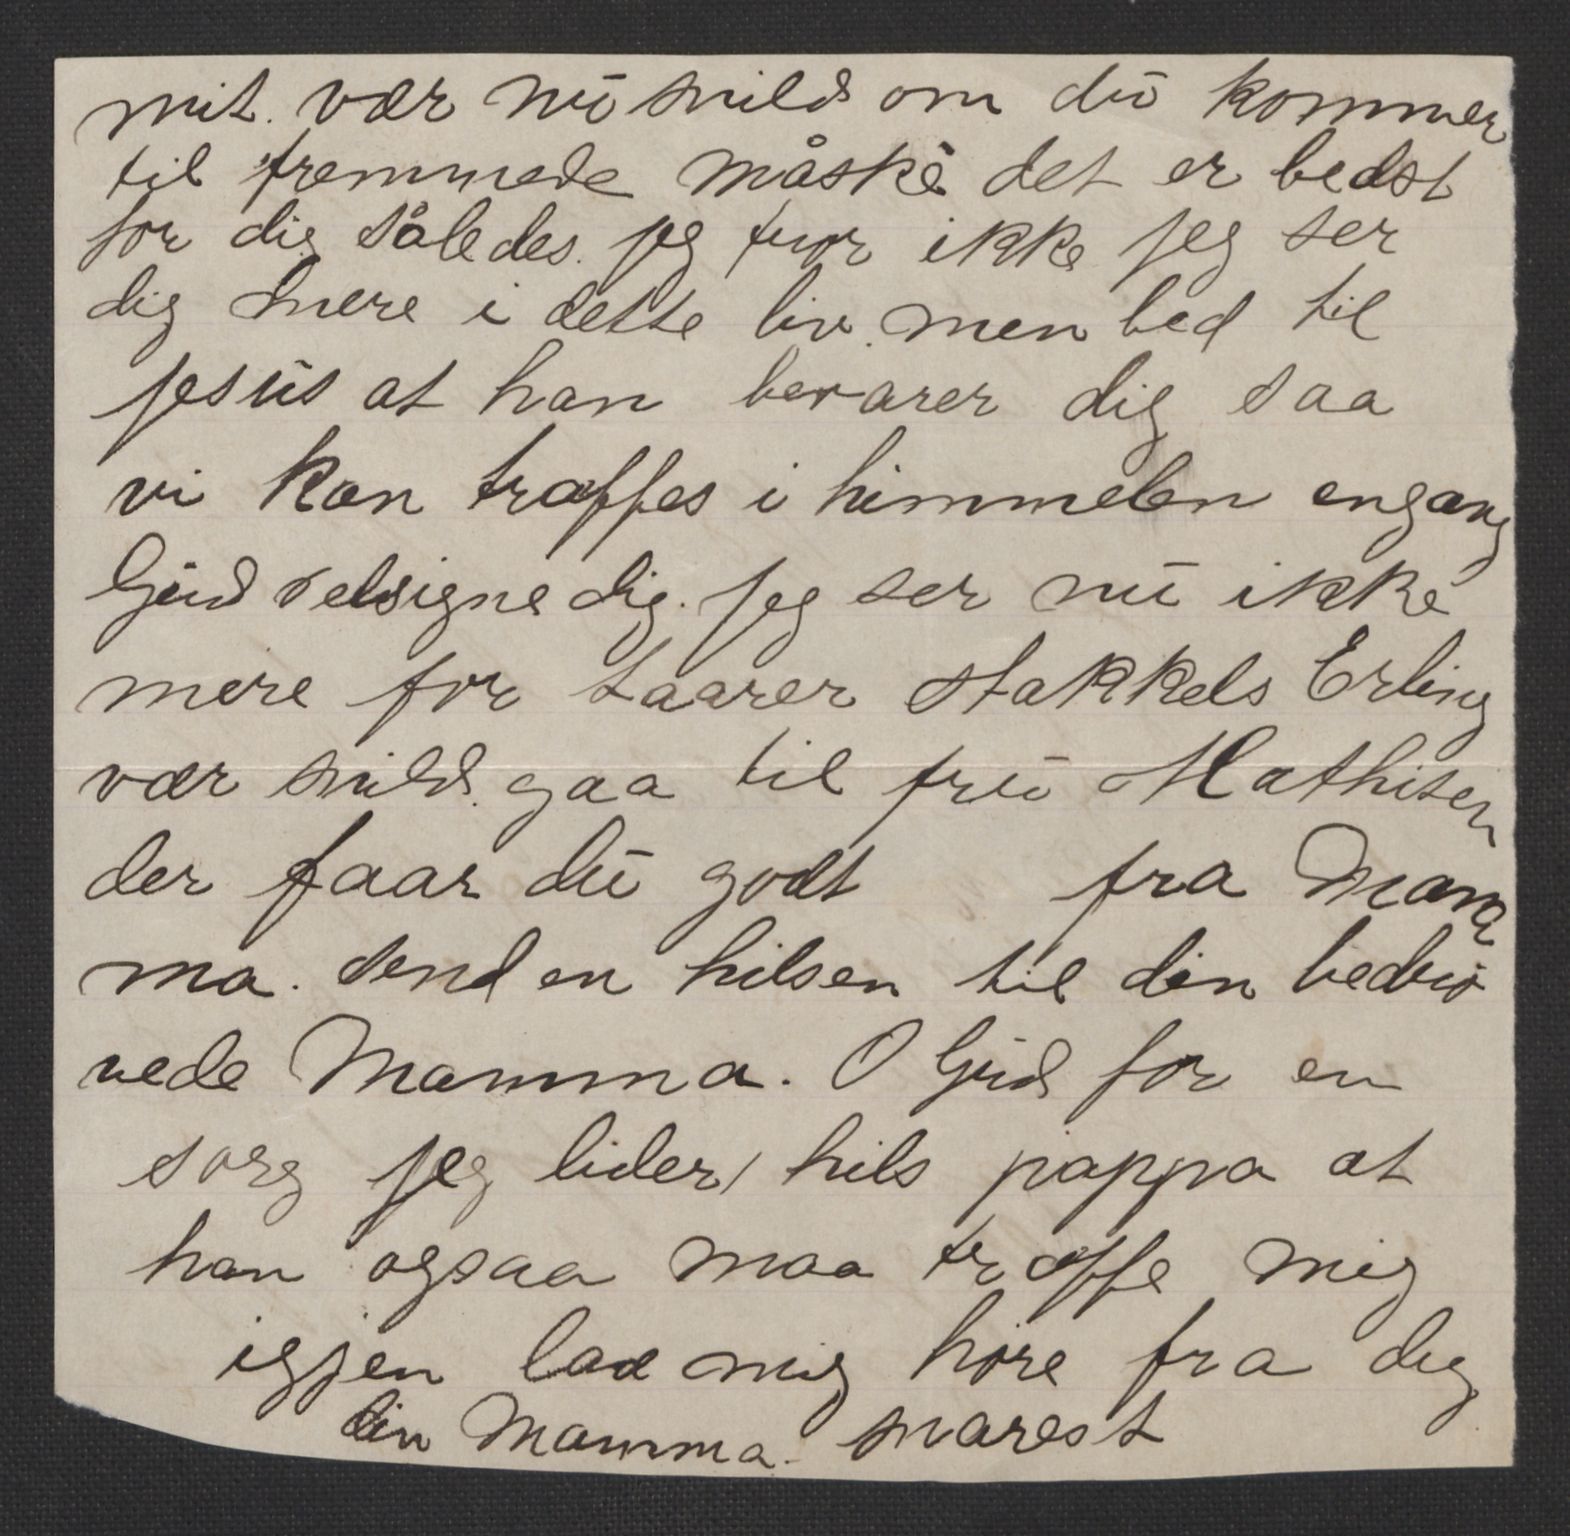 mit. vær nū snild om dū kommer
til fremmede måske det er bedst
for dig således. jeg tror ikke jeg ser
dig mere i dette liv. men bed til
jesūs at han bevarer dig saa
vi kan træffes i himmelen engang
Gūd velsigne dig. jeg ser nū ikke
mere for taarer stakkels Erling
vær snild. gaa til frū Mathisen
der faar dū godt fra Mam
ma. send en hilsen til din bedrø
vede Mamma. O Gūd for en
sorg jeg lider, hils pappa at
han ogsaa maa træffe mig
igjen lad mig høre fra dig
din Mamma. snarest